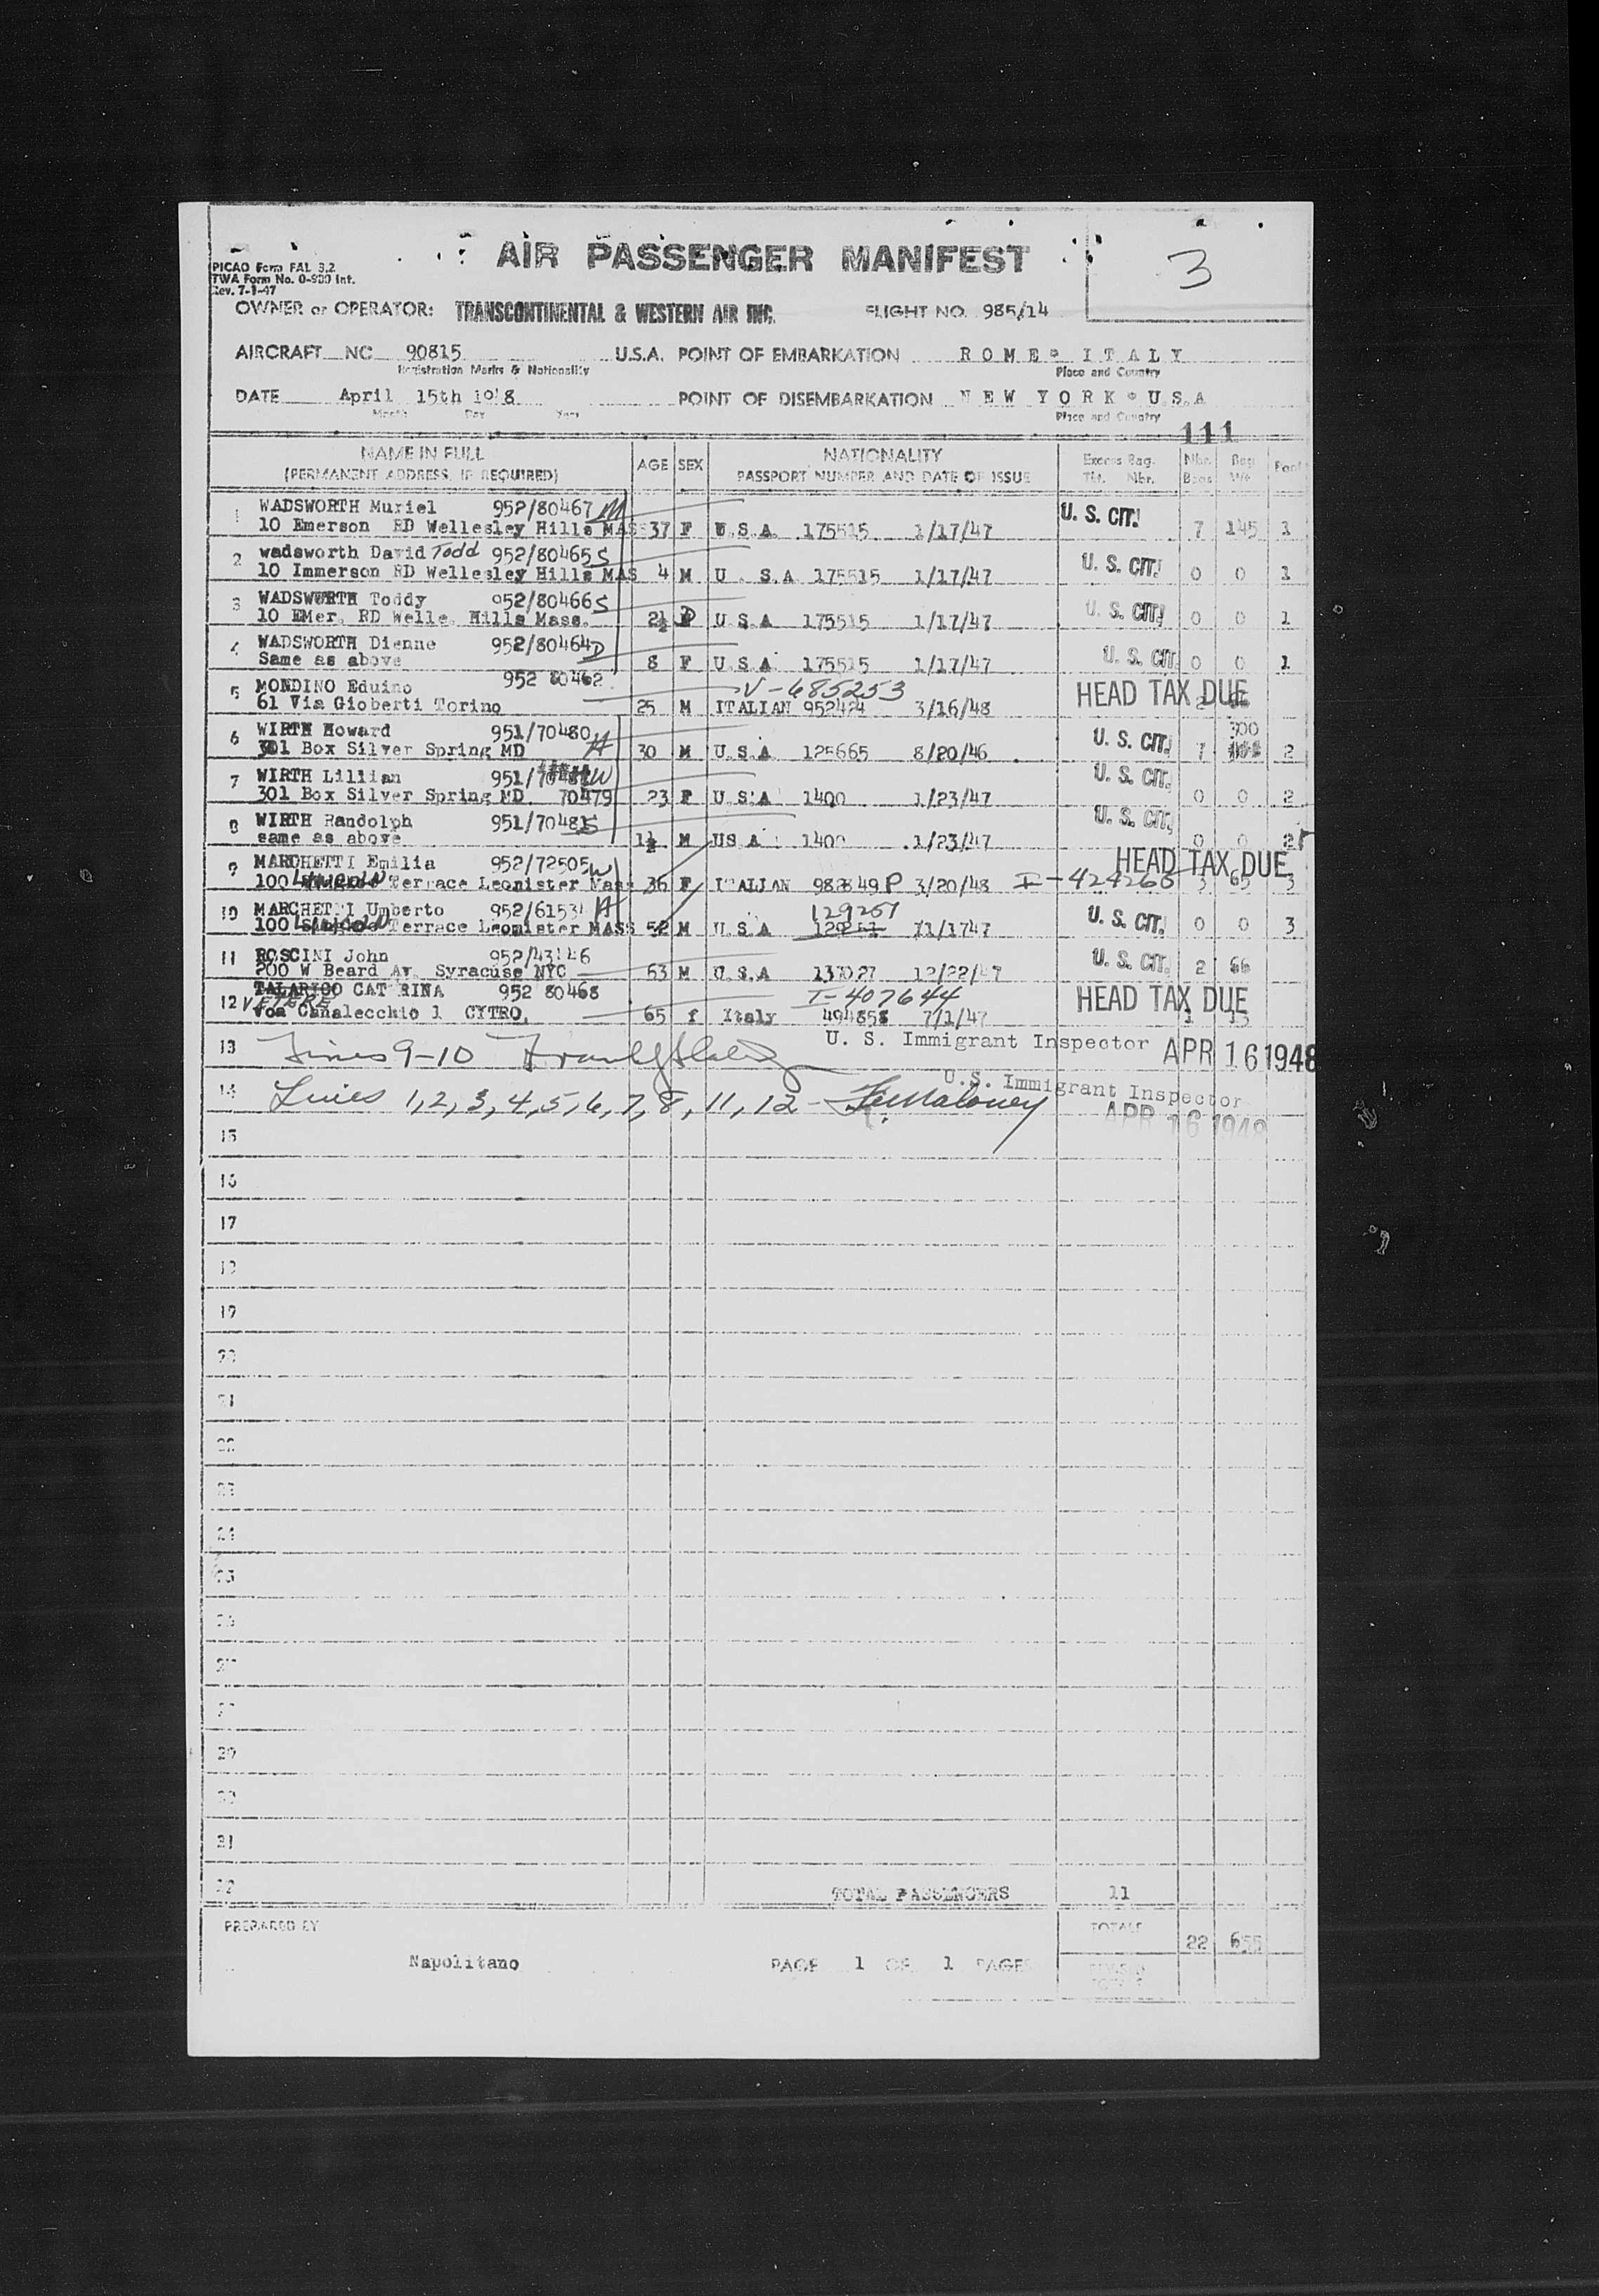 AIR PASSENGER MANIFEST
3
PICAO Form FAL 3.2
TWA Form No. 0-900 Int.
Rev. 7-1-47
OWNER or OPERATOR: TRANSCONTINENTAL & WESTERN AIR INC. FLIGHT NO. 985/14
AIRCRAFT NC 90815 U.S.A. POINT OF EMBARKATION ROME ITALY
Registration Marks & Nationality Place and Country
DATE April 15th POINT OF DISEMBARKATION NEW YORK U.S.A
Month Day Year Place and Country
111
NAME IN FULL AGE SEX NATIONALITY Excess Bag. Nbr. Bag
(PERMANENT ADDRESS, IF REQUIRED) PASSPORT NUMBER AND DATE OF ISSUE Tkt. Nbr. Bags Wt.
1 WADSWORTH Muriel 952/80467 M U. S. CIT.
10 Emerson RD Wellesley Hills MASS 37 F U.S.A. 175515 1/17/47 7 145 1
2 wadsworth David Todd 952/80465 S U. S. CIT.
10 Immerson RD Wellesley Hills MAS 4 M U. S.A 175515 1/17/47 0 0 1
3 WADSWORTH Toddy 952/80466 S U. S. CIT.
10 EMer. RD Welle. Hills Mass. 2½ U.S.A 175515 1/17/47 0 0 1
4 WADSWORTH Dienne 952/80464 D
Same as above 8 F U.S.A. 175515 1/17/47 U. S. CIT. 0 0 1
5 MONDINO Eduino 952 80462 V-685253 HEAD TAX DUE
61 Via Gioberti Torino 25 M ITALIAN 952424 3/16/48 2
6 WIRTH Howard 951/70480 H U. S. CIT. 300
301 Box Silver Spring MD 30 M U.S.A 125665 8/20/46 7 2
7 WIRTH Lillian 951/ W U. S. CIT.
301 Box Silver Spring MD. 70479 23 F U.S.A 1400 1/23/47 0 0 2
8 WIRTH Randolph 951/70481 S U. S. CIT.
same as above 1½ M US A 1400 1/23/47 0 0 2
9 MARCHETTI Emilia 952/72505 W HEAD TAX DUE
100 LINCOLN Terrace Leonister Mass 36 F ITALIAN 982849 P 3/20/48 I-424268 3 65 3
10 MARCHETTI Umberto 952/6153 H 129257 U. S. CIT.
100 LINCOLN Terrace Leomister MASS 52 M U.S.A 129257 0 0 3
11 ROSCINI John 952/43146 U. S. CIT.
200 W Beard Av. Syracuse NYC 63 M U.S.A 137027 12/22/47 2 66
12 TALARICO CAT RINA 952 80468 I-407644 HEAD TAX DUE
VETERE
Voa Canalecchio 1 CYTRO. 65 f Italy 494858 7/1/47 1 13
13 Lines 9-10 U. S. Immigrant Inspector APR 16 1948
14 Lines 1,2,3,4,5,6,7,8,11,12 - Maloney U.S. Immigrant Inspector
APR 16 1948
15
16
17
18
19
20
21
22
23
24
25
26
27
28
29
30
31
32 TOTAL PASSENGERS 11
PREPARED BY TOTALS 22 655
Napolitano PAGE 1 OF 1 PAGES